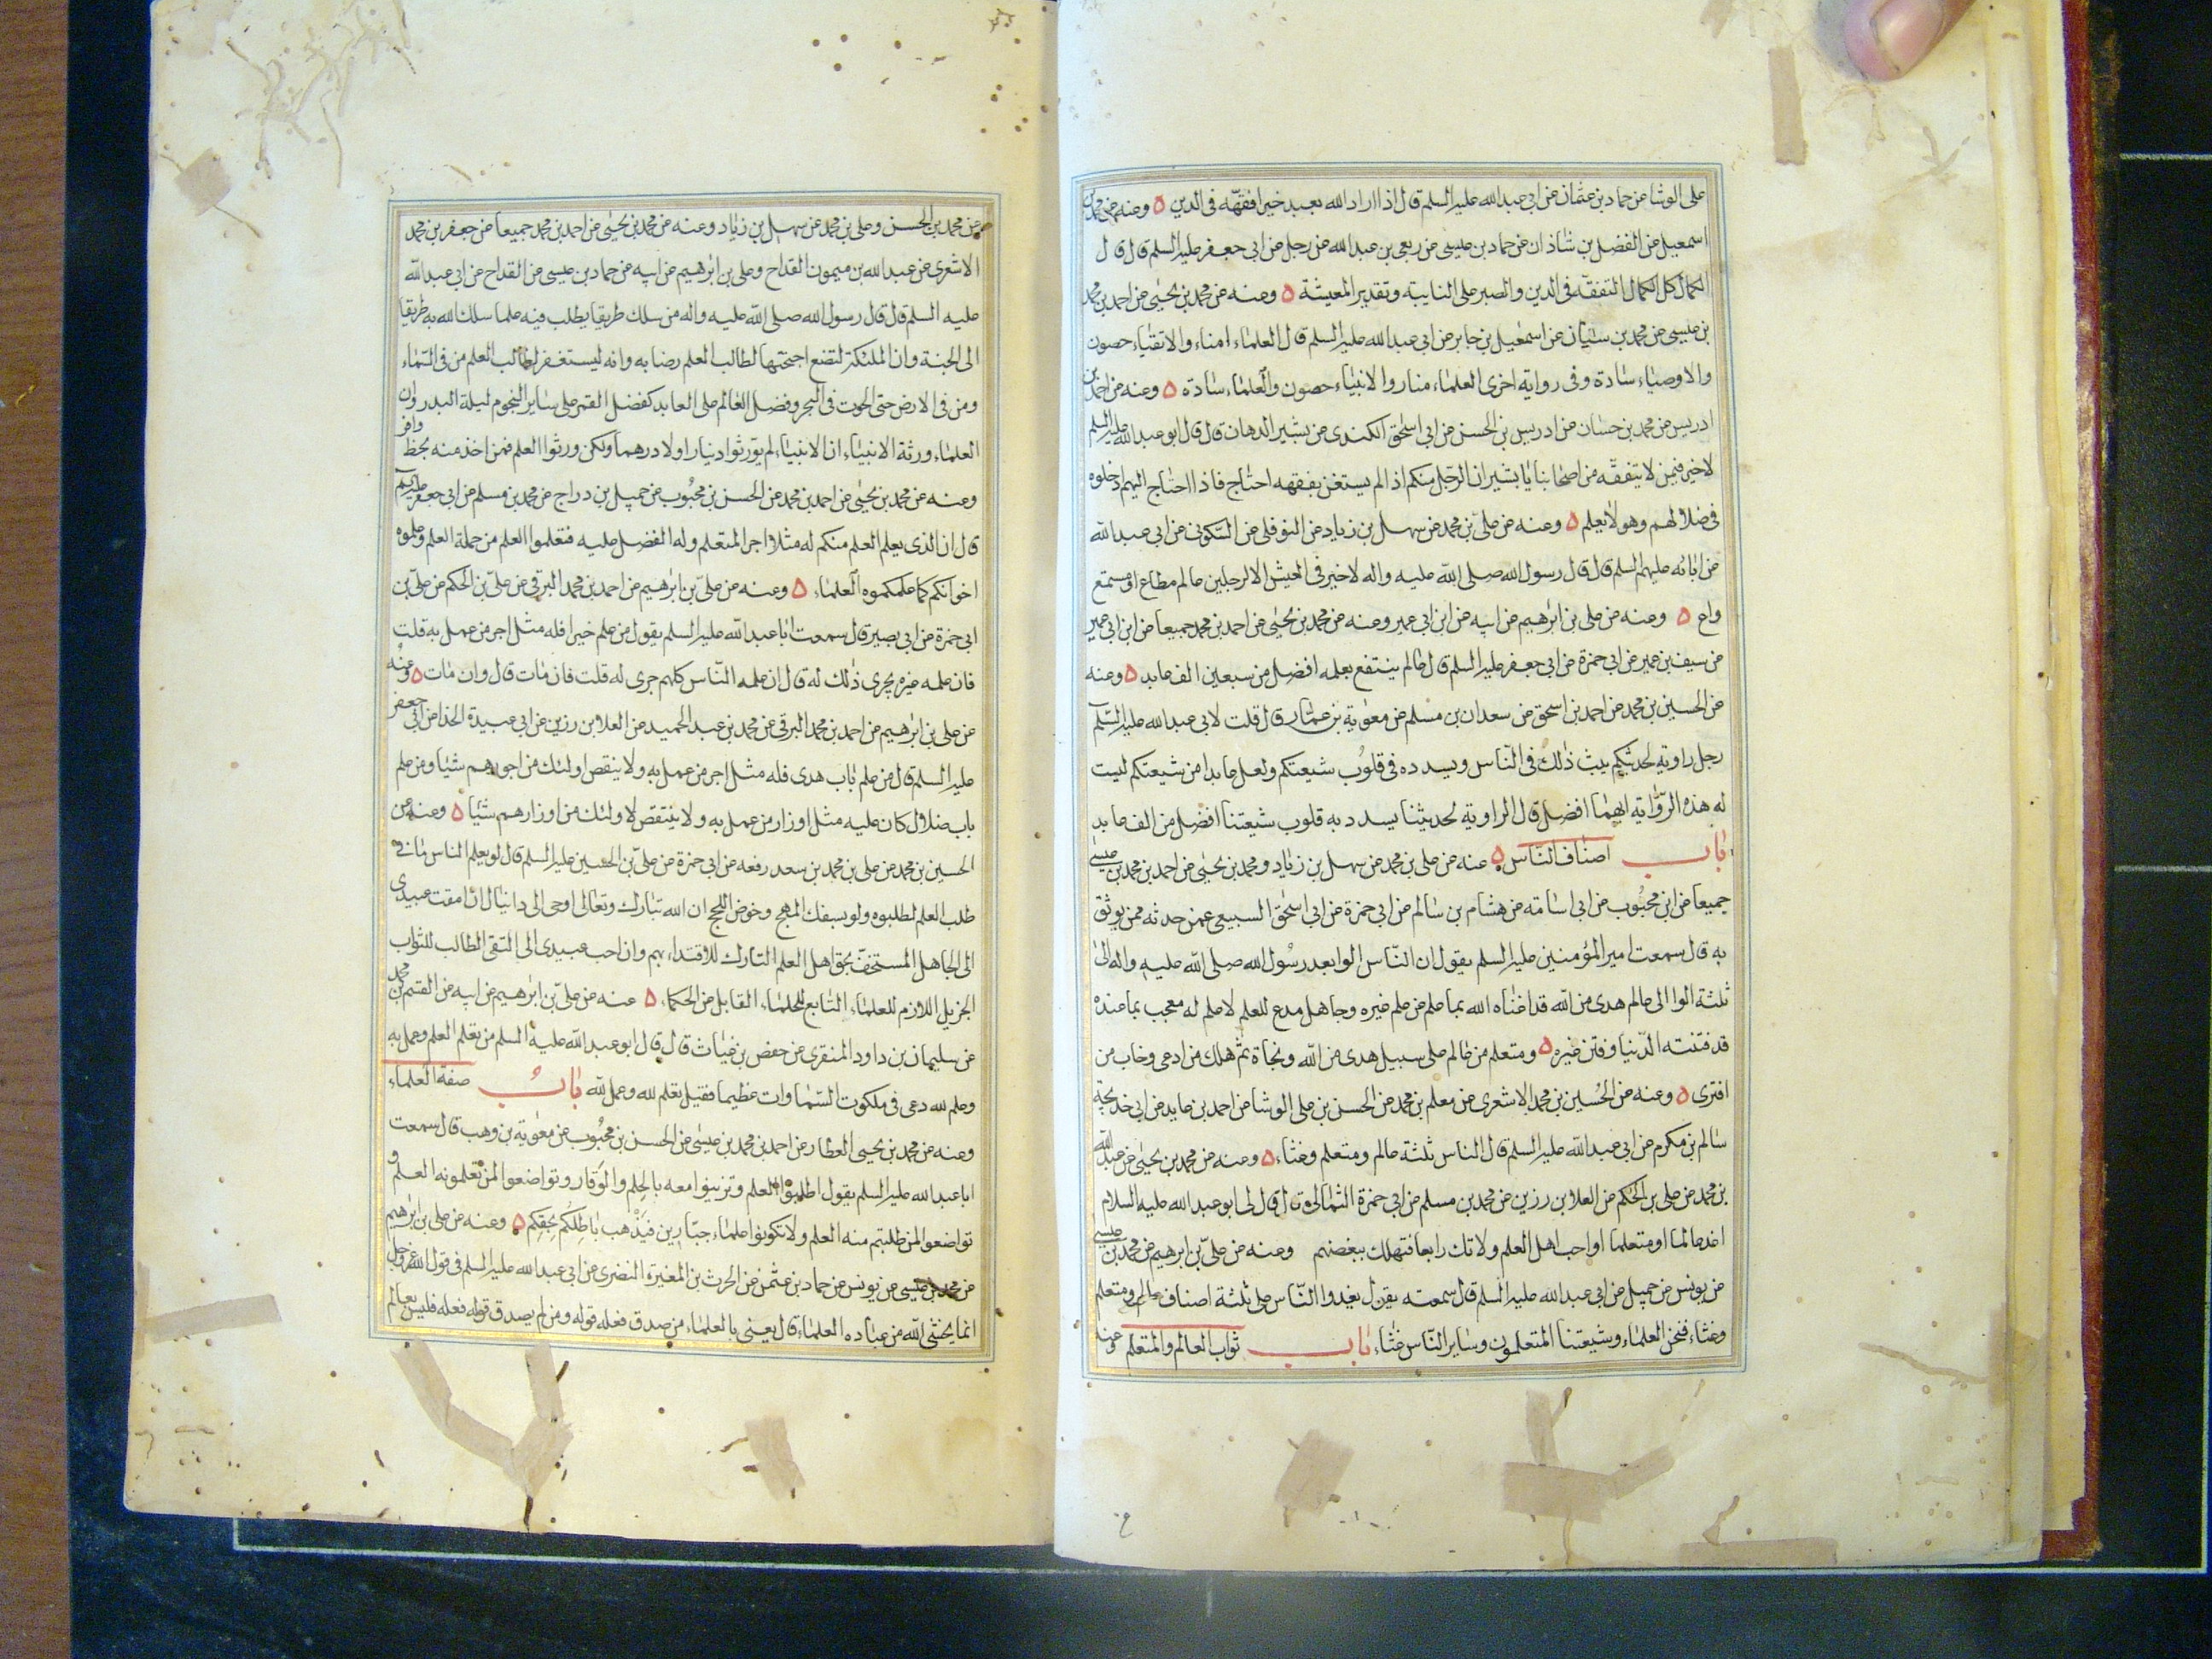 على الوشا عن حماد بن عثمان عن ابى عبد الله عليه السلم قال اذا اراد الله بعبد خيرا فقهه فى الدين ٥ وعنه عن محمد بن
اسمعيل عن الفضل بن شاذان عن حماد بن عيسى عن ربعى بن عبد الله عن رجل عن ابى جعفر عليه السلم قال قال
الكمال كل الكمال التفقه فى الدين والصبر على النايبة وتقدير المعيشة ٥ وعنه عن محمد بن يحيى عن احمد بن محمد
بن عيسى عن محمد بن سنان عن اسمعيل بن جابر عن ابى عبد الله عليه السلم قال العلماء امناء والاتقياء حصون
والاوصياء سادة وفى رواية اخرى العلماء منار والانبياء حصون والعلماء سادة ٥ وعنه عن احمد بن
ادريس عن محمد بن حسان عن ادريس بن الحسن عن ابى اسحق الكندى عن بشير الدهان قال قال ابو عبد الله عليه السلم
لاخير فيمن لا يتفقه من اصحابنا يا بشير ان الرجل منكم اذا لم يستغن بفقهه احتاج فاذا احتاج اليهم ادخلوه
فى ضلالهم وهو لا يعلم ٥ وعنه عن على بن محمد عن سهل بن زياد عن النوفلى عن السكونى عن ابى عبد الله
عن ابائه عليهم السلم قال قال رسول الله صلى الله عليه واله لا خير فى العيش الا لرجلين عالم مطاع او مستمع
واع ٥ وعنه عن على بن ابرهيم عن ابيه عن ابن ابى عمير وعنه عن محمد بن يحيى عن احمد بن محمد جميعا عن ابن ابى عمير
عن سيف بن عمير عن ابى حمزة عن ابى جعفر عليه السلم قال عالم ينتفع بعلمه افضل من سبعين الف عابد ٥ وعنه
عن الحسين بن محمد عن احمد بن اسحق عن سعدان بن مسلم عن معوية بن عمار قال قلت لابى عبد الله عليه السلم
رجل راوية لحديثكم يبث ذلك فى الناس ويسدده فى قلوب شيعتكم ولعل عابدا من شيعتكم ليست
له هذه الرواية ايهما افضل قال الراوية لحديثنا يسدد به قلوب شيعتنا افضل من الف عابد
باب اصناف الناس ٥ عنه عن على بن محمد عن سهل بن زياد ومحمد بن يحيى عن احمد بن محمد بن عيسى
جميعا عن ابن محبوب عن ابى اسامة عن هشام بن سالم عن ابى حمزة عن ابى اسحق السبيعى عمن حدثه ممن يوثق
به قال سمعت امير المؤمنين عليه السلم يقول ان الناس الوا بعد رسول الله صلى الله عليه واله الى
ثلثة الوا الى عالم هدى من الله قد اغناه الله بما علم عن علم غيره وجاهل مدع للعلم لا علم له معجب بما عنده
قد فتنته الدنيا وفتن غيره ٥ ومتعلم من عالم على سبيل هدى من الله ونجاة ثم هلك من ادعى وخاب من
افترى ٥ وعنه عن الحسين بن محمد الاشعرى عن معلى بن محمد عن الحسن بن على الوشا عن احمد بن عايد عن ابى خديجة
سالم بن مكرم عن ابى عبد الله عليه السلم قال الناس ثلثة عالم ومتعلم وغثاء ٥ وعنه عن محمد بن يحيى عن عبد الله
بن محمد عن على بن الحكم عن العلا بن رزين عن محمد بن مسلم عن ابى حمزة الثمالى قال قال لى ابو عبد الله عليه السلام
اغد عالما او متعلما او احب اهل العلم ولا تك رابعا فتهلك ببغضهم وعنه عن على بن ابرهيم عن محمد بن عيسى
عن يونس عن جميل عن ابى عبد الله عليه السلم قال سمعته يقول يغدوا الناس على ثلثة اصناف عالم ومتعلم
وغثاء فنحن العلماء وشيعتنا المتعلمون وساير الناس غثاء باب ثواب العالم والمتعلم وعنه
عن محمد بن الحسن وعلى بن محمد عن سهل بن زياد وعنه عن محمد بن يحيى عن احمد بن محمد جميعا عن جعفر بن محمد
الاشعرى عن عبد الله بن ميمون القداح وعلى بن ابرهيم عن ابيه عن حماد بن عيسى عن القداح عن ابى عبد الله
عليه السلم قال قال رسول الله صلى الله عليه واله من سلك طريقا يطلب فيه علما سلك الله به طريقا
الى الجنة وان الملئكة لتضع اجنحتها لطالب العلم رضا به وانه ليستغفر لطالب العلم من فى السماء
ومن فى الارض حتى الحوت فى البحر وفضل العالم على العابد كفضل القمر على ساير النجوم ليلة البدر وان
العلماء ورثة الانبياء ان الانبياء لم يورثوا دينارا ولا درهما ولكن ورثوا العلم فمن اخذ منه بحظ وافر
وعنه عن محمد بن يحيى عن احمد بن محمد عن الحسن بن محبوب عن جميل بن دراج عن محمد بن مسلم عن ابى جعفر عليه السلم
قال ان الذى يعلم العلم منكم له مثل اجر المتعلم وله الفضل عليه فتعلموا العلم من حملة العلم وعلموه
اخوانكم كما علمكموه العلماء ٥ وعنه عن على بن ابرهيم عن احمد بن محمد البرقى عن على بن الحكم عن على بن
ابى حمزة عن ابى بصير قال سمعت ابا عبد الله عليه السلم يقول من علم خيرا فله مثل اجر من عمل به قلت
فان علمه غيره يجرى ذلك له قال ان علمه الناس كلهم جرى له قلت فان مات قال وان مات ٥ وعنه
عن على بن ابرهيم عن احمد بن محمد البرقى عن محمد بن عبد الحميد عن العلا بن رزين عن ابى عبيدة الحذا عن ابى جعفر
عليه السلم قال من علم باب هدى فله مثل اجر من عمل به ولا ينقص اولئك من اجورهم شيئا ومن علم
باب ضلال كان عليه مثل اوزار من عمل به ولا ينتقص لاولئك من اوزارهم شيئا ٥ وعنه عن
الحسين بن محمد عن على بن محمد بن سعد رفعه عن ابى حمزة عن على بن الحسين عليه السلم قال لو يعلم الناس ما فى
طلب العلم لطلبوه ولو بسفك المهج وخوض اللجج ان الله تبارك وتعالى اوحى الى دانيال ان امقت عبيدى
الى الجاهل المستخف بحق اهل العلم التارك للاقتداء بهم وان احب عبيدى الى التقى الطالب للثواب
الجزيل اللازم للعلماء التابع للحلماء القابل عن الحكماء ٥ عنه عن على بن ابرهيم عن ابيه عن القسم بن محمد
عن سليمان بن داود المنقرى عن حفص بن غياث قال قال ابو عبد الله عليه السلم من تعلم العلم وعمل به
وعلم لله دعى فى ملكوت السماوات عظيما فقيل تعلم لله وعمل لله باب صفة العلماء
وعنه عن محمد بن يحيى العطار عن احمد بن محمد بن عيسى عن الحسن بن محبوب عن معوية بن وهب قال سمعت
ابا عبد الله عليه السلم يقول اطلبوا العلم وتزينوا معه بالحلم والوقار وتواضعوا لمن تعلمونه العلم و
تواضعوا لمن طلبتم منه العلم ولا تكونوا علماء جبارين فيذهب باطلكم بحقكم ٥ وعنه عن على بن ابرهيم
عن محمد بن عيسى عن يونس عن حماد بن عثمن عن الحرث بن المغيرة النضرى عن ابى عبد الله عليه السلم فى قول الله عز وجل
انما يخشى الله من عباده العلماء قال يعنى بالعلماء من صدق فعله قوله ومن لم يصدق قوله فعله فليس بعالم